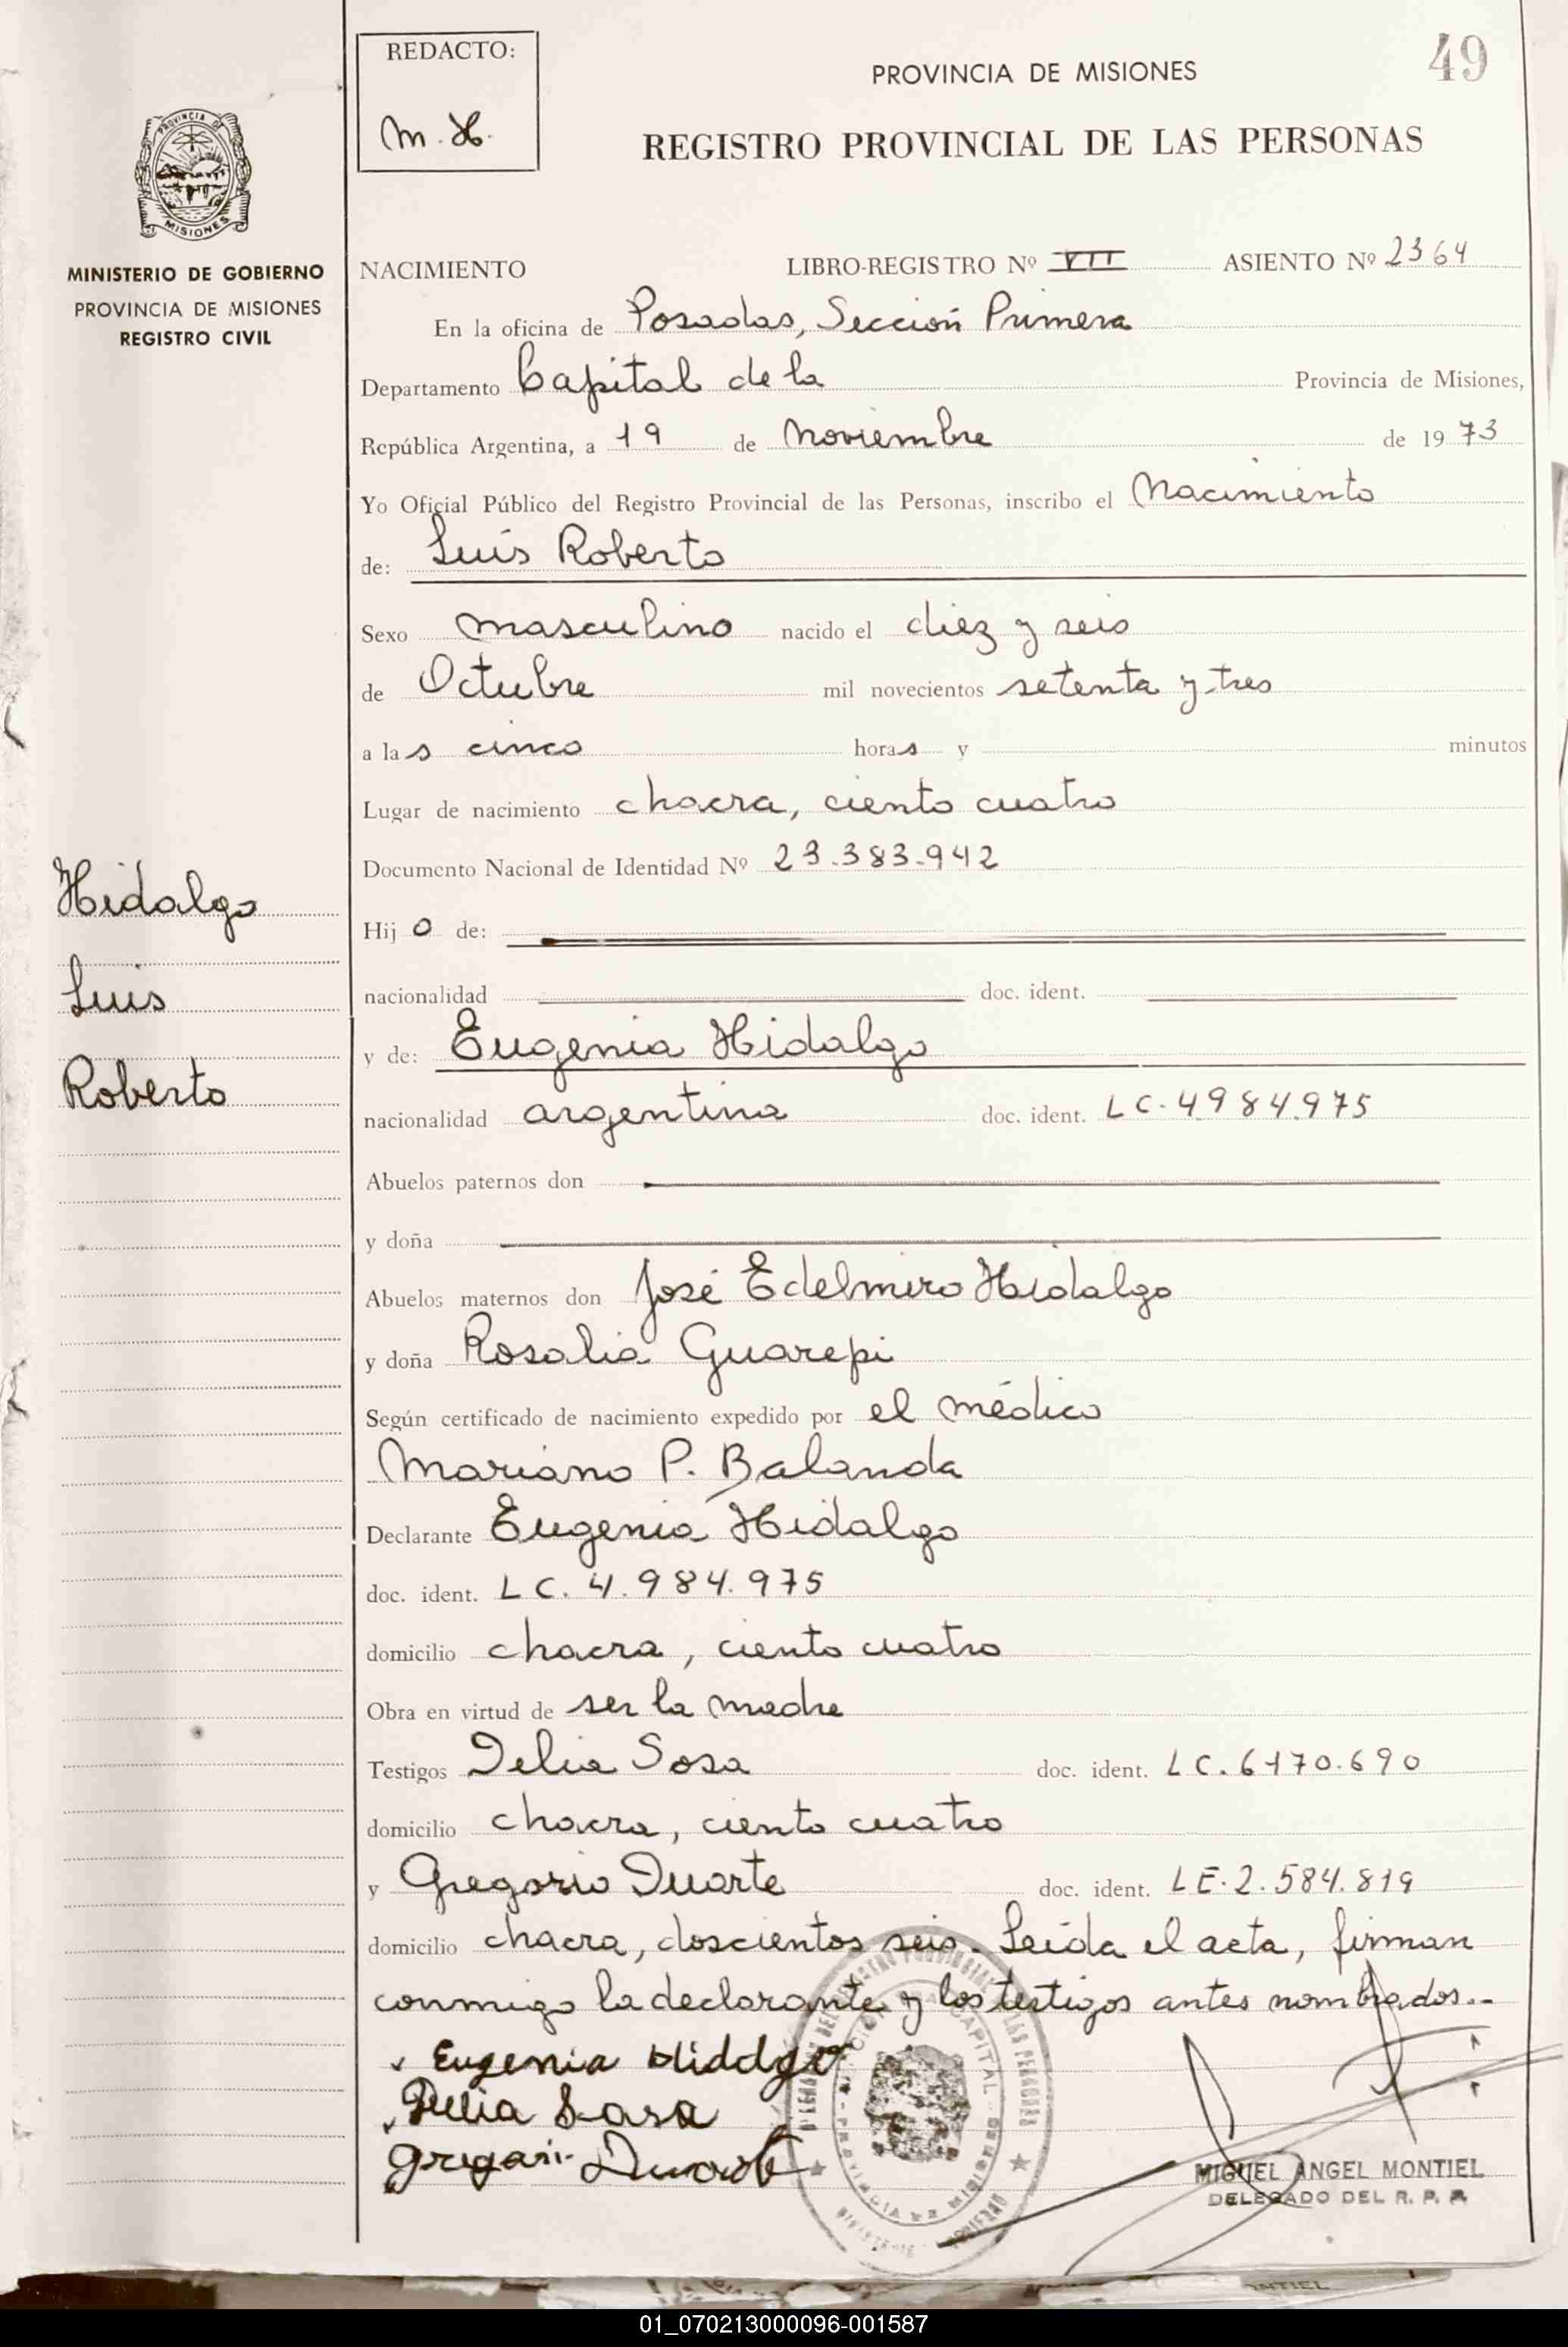 REDACTO:
M. H.
49
PROVINCIA DE MISIONES
REGISTRO PROVINCIAL DE LAS PERSONAS
PROVINCIA D
MISIONES
MINISTERIO DE GOBIERNO
PROVINCIA DE MISIONES
REGISTRO CIVIL
NACIMIENTO LIBRO-REGISTRO Nº VII ASIENTO Nº 2364
En la oficina de Posadas, Sección Primera
Departamento Capital de la Provincia de Misiones,
República Argentina, a 19 de Noviembre de 1973
Yo Oficial Público del Registro Provincial de las Personas, inscribo el Nacimiento
de: Luis Roberto
Sexo masculino nacido el diez y seis
de Octubre mil novecientos setenta y tres
a las cinco horas y minutos
Lugar de nacimiento chacra, ciento cuatro
Documento Nacional de Identidad Nº 23.383.942
Hidalgo
Luis
Roberto
Hijo de:
nacionalidad doc. ident.
y de: Eugenia Hidalgo
nacionalidad argentina doc. ident. LC. 4984.975
Abuelos paternos don
y doña
Abuelos maternos don José Edelmiro Hidalgo
y doña Rosalia Guarepi
Según certificado de nacimiento expedido por el médico
Mariano P. Balanda
Declarante Eugenia Hidalgo
doc. ident. LC. 4.984.975
domicilio chacra, ciento cuatro
Obra en virtud de ser la madre
Testigos Delia Sosa doc. ident. LC. 6170.690
domicilio chacra, ciento cuatro
y Gregorio Duarte doc. ident. LE. 2.584.819
domicilio chacra, doscientos seis. Leída el acta, firman
conmigo la declarante y los testigos antes nombrados.-
Eugenia Hidalgo
Delia Sosa
MIGUEL ANGEL MONTIEL
DELEGADO DEL R. P. P.
01_070213000096-001587